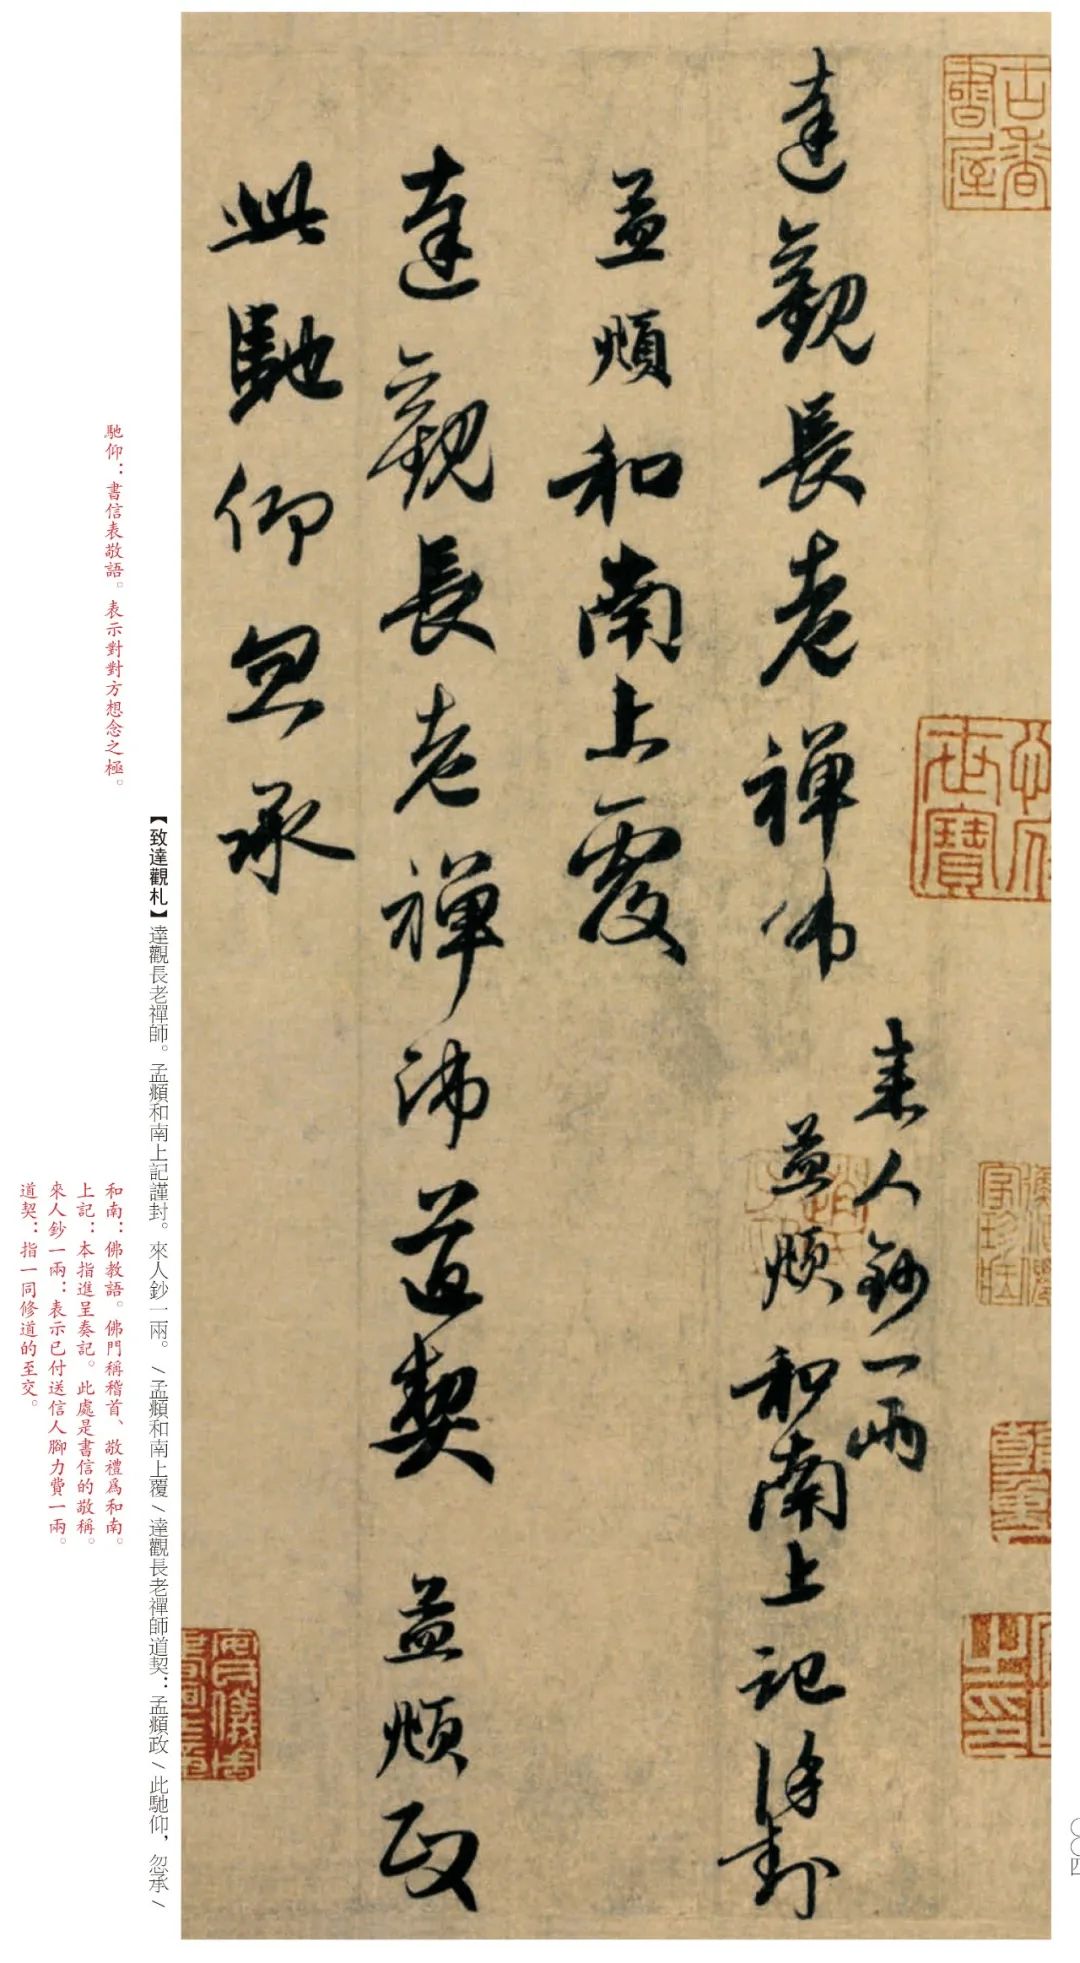 達觀長老禪師
來人鈔一兩
孟頫和南上記謹封
孟頫和南上覆
達觀長老禪師道契 孟頫政
此馳仰忽承
古香書屋
【致達觀札】達觀長老禪師。孟頫和南上記謹封。來人鈔一兩。/孟頫和南上覆/達觀長老禪師道契:孟頫政/此馳仰,忽承/
馳仰:書信表敬語。表示對對方想念之極。
和南:佛教語。佛門稱稽首、敬禮爲和南。
上記:本指進呈奏記。此處是書信的敬稱。
來人鈔一兩:表示已付送信人腳力費一兩。
道契:指一同修道的至交。
〇〇四